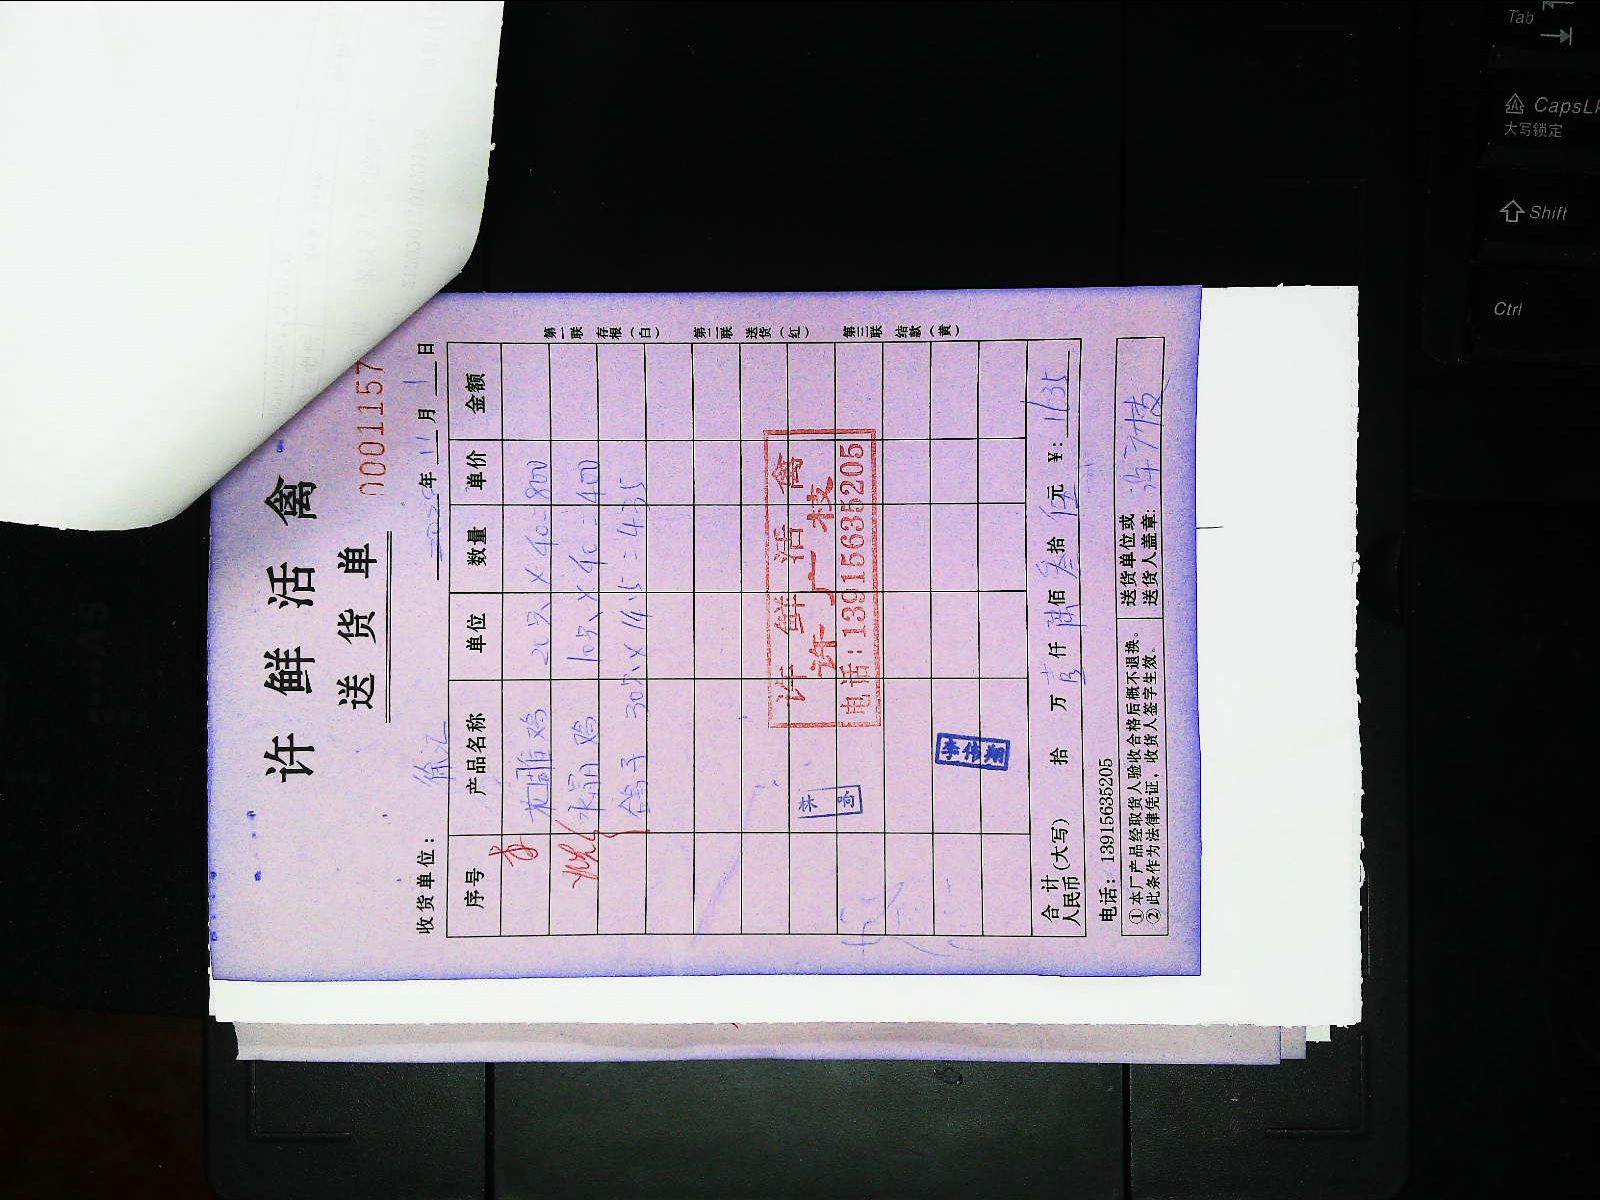 许 鲜 活 禽
送 货 单
0001157
收货单位： 徐汇
年 11 月 1 日
序号 产品名称 单位 数量 单价 金额
鸡 20只×40=800
鸡 10只×40=400
鸽子 30只×14.5=435
许 鲜 活 禽
许 广 枝
电话：13915635205
李伟翔
合 计
人民币 (大写) 拾 万 壹 仟 陆 佰 叁 拾 伍 元 ¥: 1635
电话: 13915635205
①本厂产品经取货人验收合格后概不退换。
②此条作为法律凭证，收货人签字生效。
送货单位或
送货人盖章:
许广枝
第一联 存根（白）
第二联 送货（红）
第三联 结款（黄）
Tab
CapsL
大写锁定
Shift
Ctrl